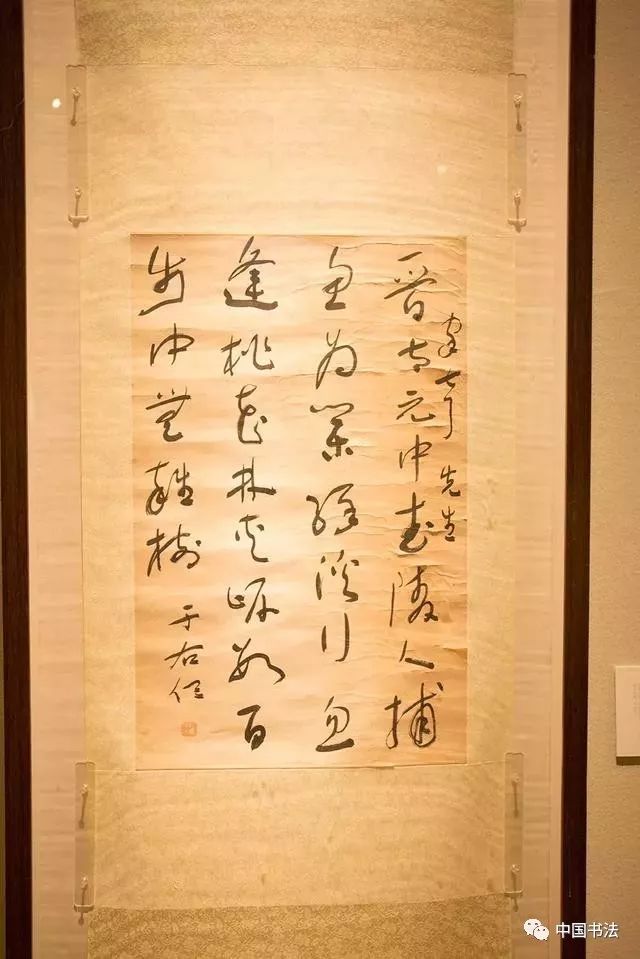 先生
晉太元中武陵人捕
魚為業緣溪行忽
逢桃花林夾岸數百
步中無雜樹
于右任
中国书法